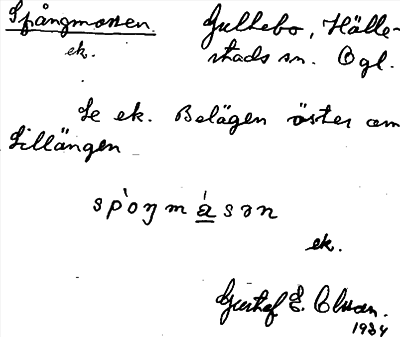 Spångmossen. Gullebo, Hälle-
ek. stads sn. Ögl.
Se ek. Belägen öster om
Lillängen
spòŋmásən
ek.
Gustaf E. Olsson.
1934